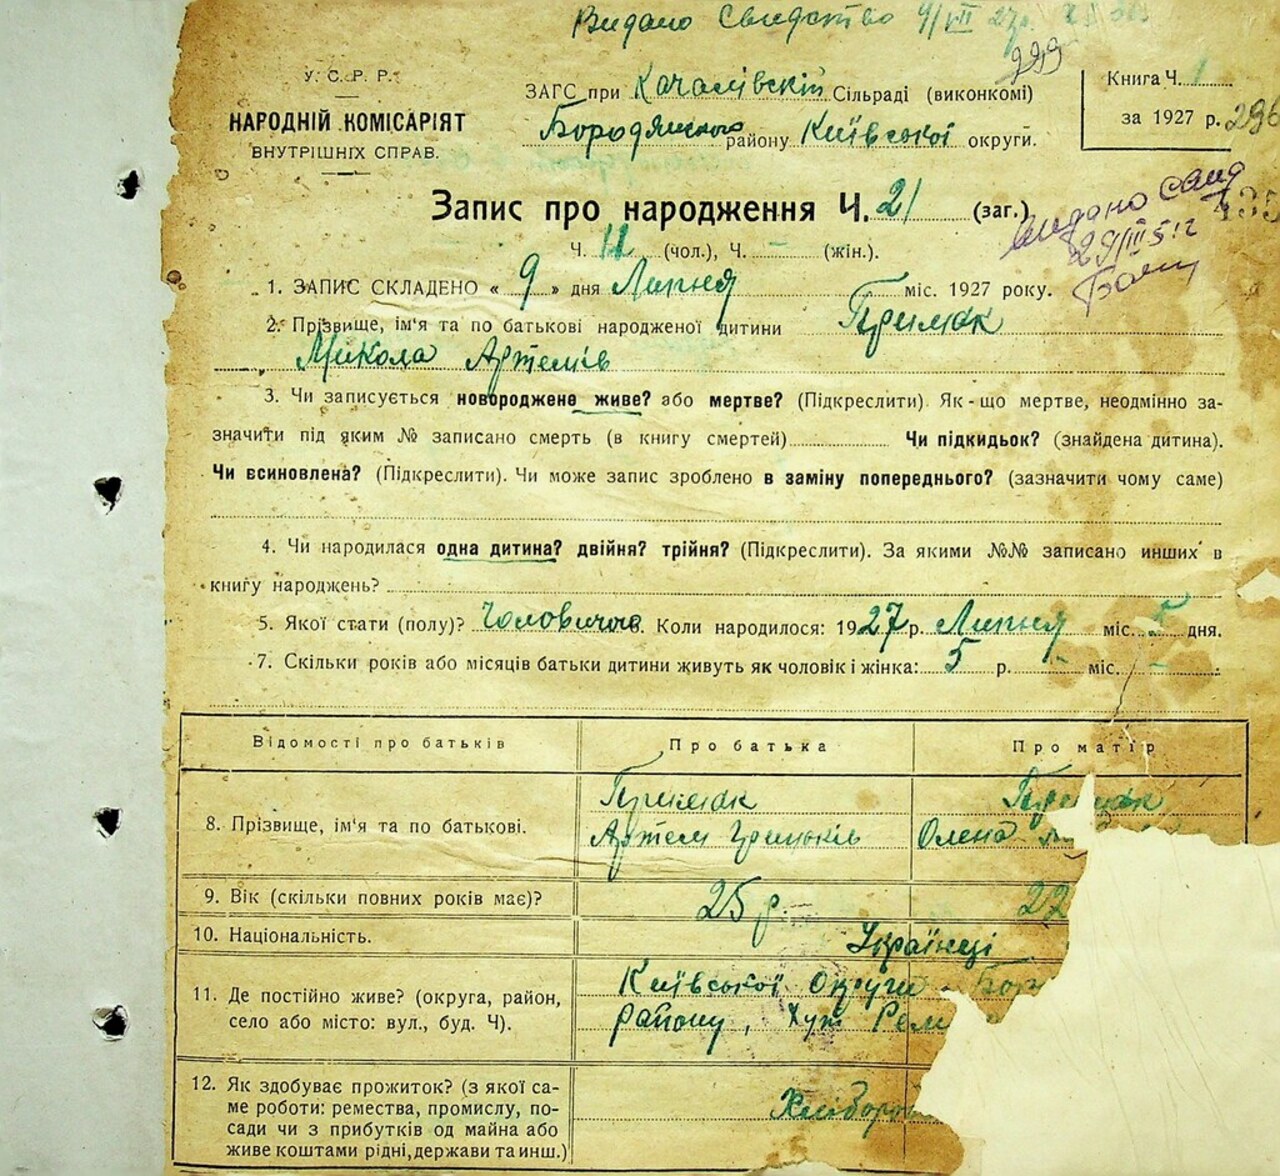 Видано Свидство 9/VII 27р.
299
У. С. Р. Р.
НАРОДНІЙ КОМІСАРІЯТ
ВНУТРІШНІХ СПРАВ.
ЗАГС при Качалівскій Сільраді (виконкомі)
Бородянського району Київської округи.
Книга Ч. 1
за 1927 р. 296
Запис про народження Ч. 21 (заг.)
Ч. 11 (чол.), Ч. – (жін.).
Видано Свид
29/III 51г
1. ЗАПИС СКЛАДЕНО « 9 » дня Липня міс. 1927 року.
2. Прізвище, ім'я та по батькові народженої дитини Примак
Микола Артемів
3. Чи записується новороджене живе? або мертве? (Підкреслити). Як-що мертве, неодмінно за-
значити під яким № записано смерть (в книгу смертей) Чи підкидьок? (знайдена дитина).
Чи всиновлена? (Підкреслити). Чи може запис зроблено в заміну попереднього? (зазначити чому саме)
4. Чи народилася одна дитина? двійня? трійня? (Підкреслити). За якими №№ записано инших в
книгу народжень?
5. Якої стати (полу)? Чоловічої. Коли народилося: 1927 р. Липня міс. 5 дня.
7. Скільки років або місяців батьки дитини живуть як чоловік і жінка: 5 р. – міс. –
Відомості про батьків Про батька Про матір
8. Прізвище, ім'я та по батькові. Примак Примак
Артем Грицьків Олена
9. Вік (скільки повних років має)? 25 р. 22
10. Національність. Українці
11. Де постійно живе? (округа, район, Київської Округи Бор
село або місто: вул., буд. Ч). району, Хут Рем
12. Як здобуває прожиток? (з якої са-
ме роботи: ремества, промислу, по- Хлібороб
сади чи з прибутків од майна або
живе коштами рідні, держави та инш.)